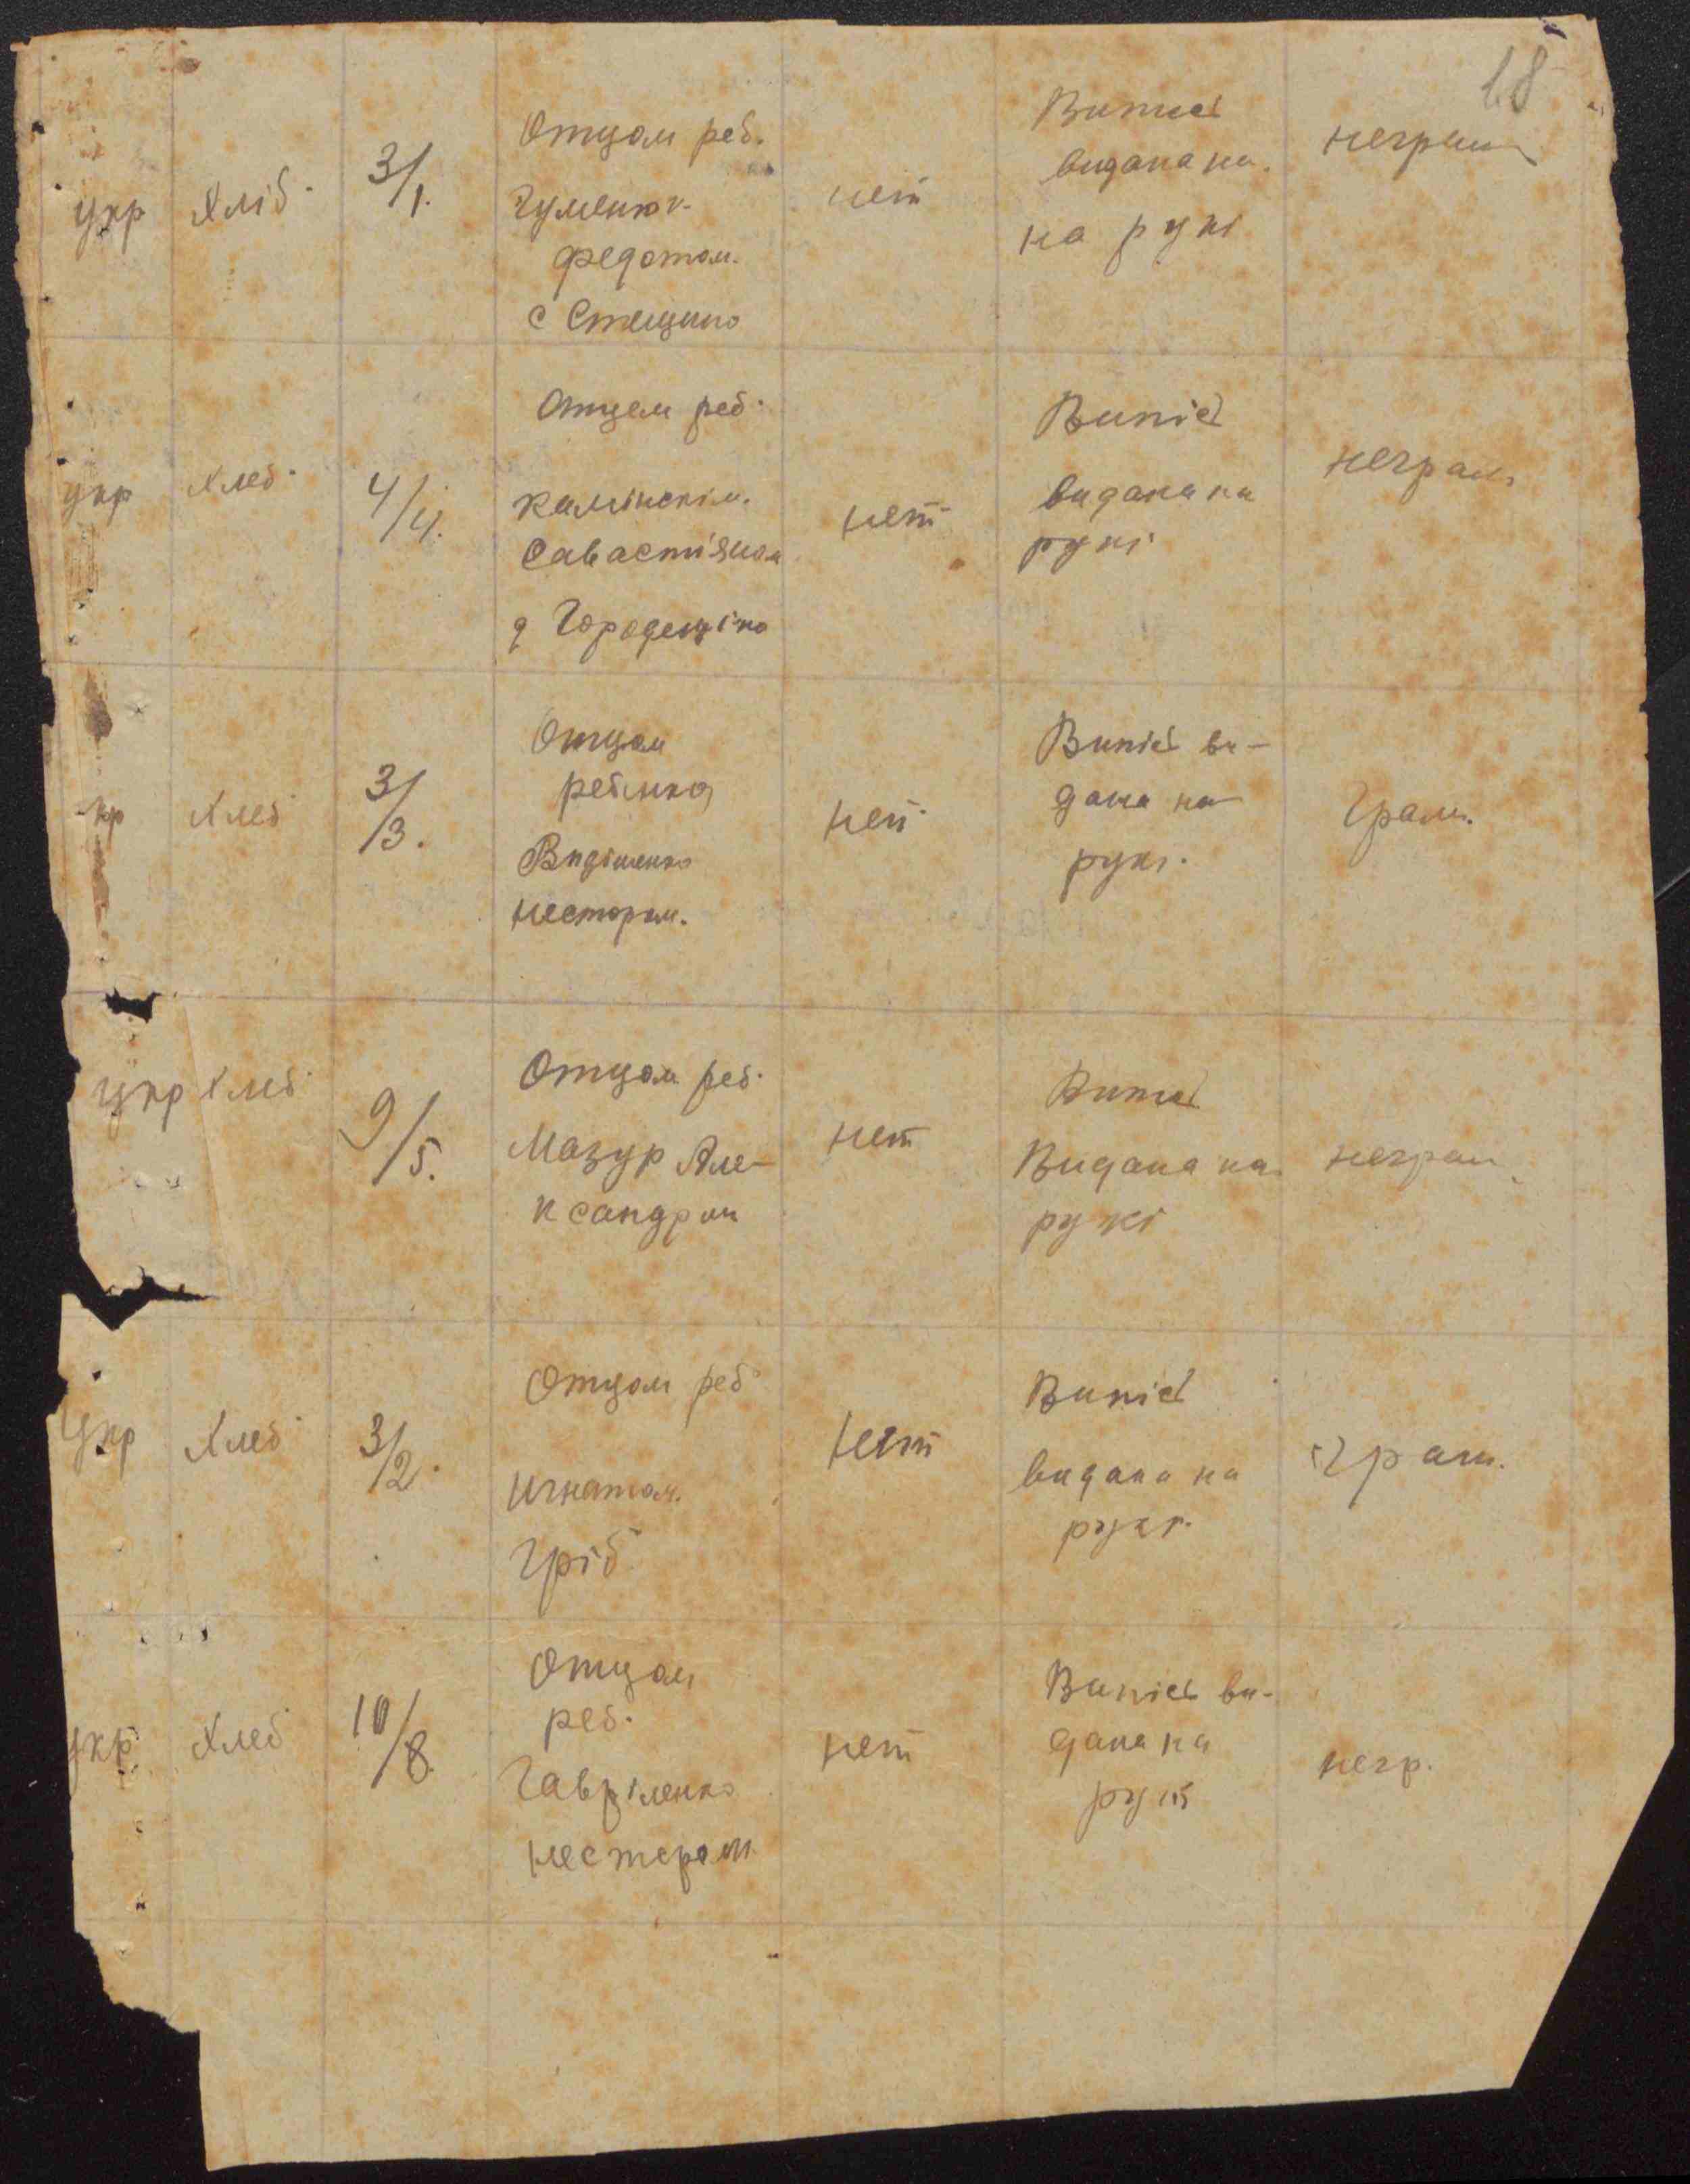 18
укр
Хліб.
3/1.
Отцом реб.
Гуменюк
Федотом.
с Стецино
нет
Випис
видана на
на рукі
неграм
укр
Хлеб.
4/4.
Отцем реб.
Камінскім.
Савастіяном
д Городещіно
нет
Випісь
видана на
рукі
неграм.
кр
Хлеб
3/3.
Отцом
ребенка
Нестором.
нет
Випісь ви-
дана на
рукі.
Грам.
укр
Хлеб.
9/5.
Отцом реб.
Мазур Але-
ксандром
нет
Випис
Видана на
рукі
неграм.
Укр
Хлеб
3/2.
Отцом реб
Игнатом.
Гріб
нет
Випісь
видана на
рукі.
Грам.
укр.
Хлеб
10/8.
Отцом
реб.
Гавріленко
Нестером
нет
Випісь ви-
дана на
рукі
негр.